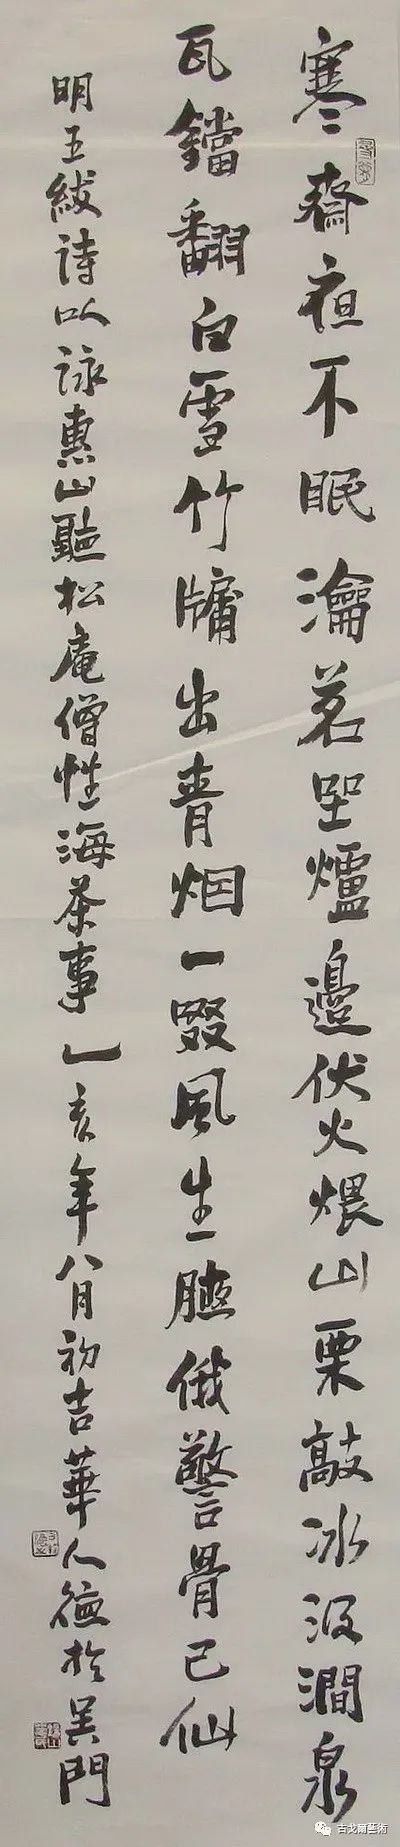 寒齋夜不眠瀹茗坐爐邊伏火煨山栗敲冰汲澗泉
瓦鐺翻白雪竹牖出青烟一啜風生腋俄警骨已仙
明王紱詩以詠惠山聽松庵僧性海茶事乙亥年八月初吉華人德於吴門
古戈爾藝術